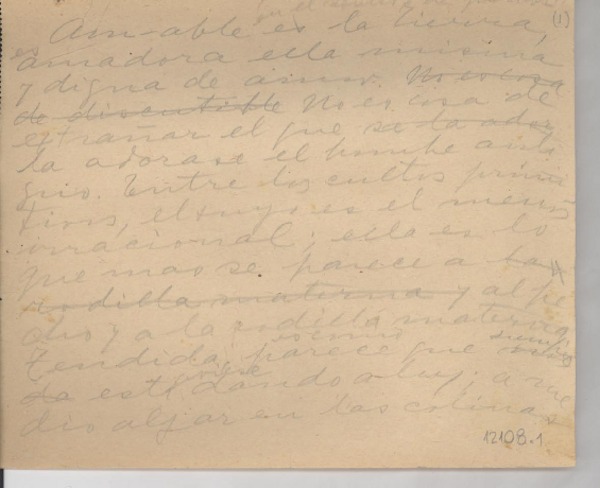 en el
(1)
Am-able es la tierra,
es amadora ella misma
y digna de amor. No es cosa
de discutible No es cosa de
extrañar el que se la ador
la adorase el hombre anti
guo. Entre los cultos primi
tivos, el suyo es el menos
irracional; ella es lo
que mas se parece a la
rodilla materna y al pe
cho y a la rodilla materna
tendida; parece que siempre
está dando a luz; a
dio aljar en las colinas
12108.1